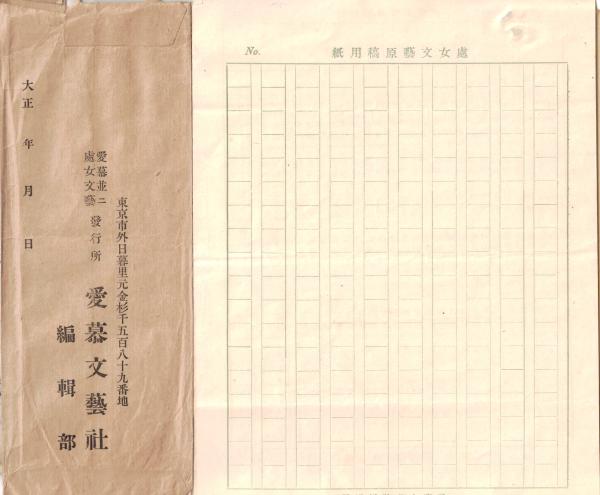 No.
處女文藝原稿用紙
東京市外日暮里元金杉千五百八十九番地
愛慕並ニ
處女文藝
發行所
愛慕文藝社
編輯部
大正 年 月 日